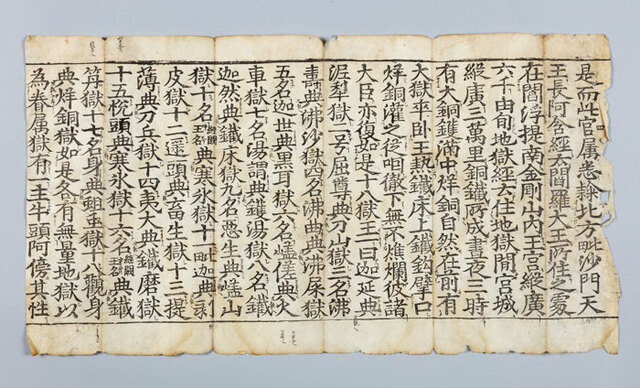 是而此官属悉隷北方毗沙門天
王長阿含經云閻羅大王所住之處
在閻浮提南金剛山內王宮縱廣
六千由旬地獄經云住地獄間宮城
縱廣三萬里銅鐵所成晝夜三時
有大銅鑊滿中烊銅自然在前有
大獄卒卧王熱鐵床上鐵鉤擘口
烊銅灌之從咽徹下無不燋爛彼諸
大臣亦復如是十八獄王一曰迦延典
泥犁獄二号屈尊典刀山獄三名沸
壽典沸沙獄四名沸曲典沸屎獄
五名迦世典黑耳獄六名傞典火
車獄七名湯謂典鑊湯獄八名鐵
迦然典鐵床獄九名惡生典山
獄十名經闕王名典寒氷獄十一毗迦典剥
皮獄十二遥頭典畜生獄十三提
薄典刀兵獄十四夷大典鐵磨獄
十五悅頭典寒氷獄十六名經闕王名典鐵
獄十七名身典蛆虫獄十八觀身
典烊銅獄如是各有無量地獄以
為眷属獄有一主牛頭阿傍其性